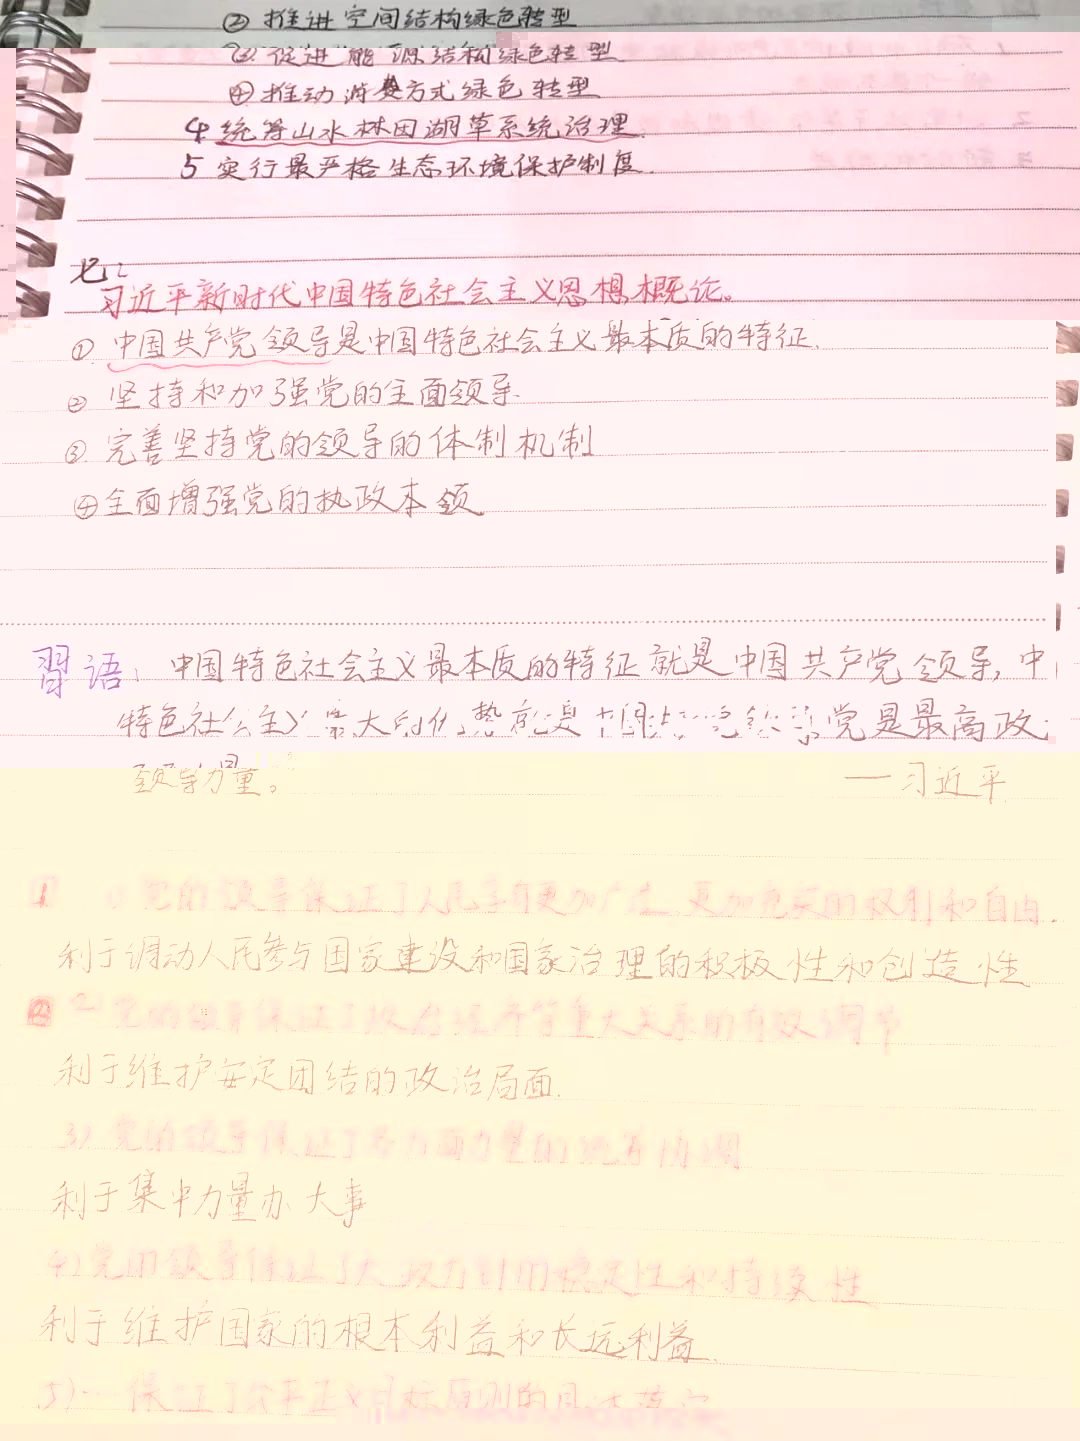 ② 推进空间结构绿色转型
③ 促进能源结构绿色转型
④ 推动消费方式绿色转型
4 统筹山水林田湖草系统治理.
5 实行最严格生态环境保护制度.
七:
习近平新时代中国特色社会主义思想概论。
① 中国共产党领导是中国特色社会主义最本质的特征.
② 坚持和加强党的全面领导.
③ 完善坚持党的领导的体制机制
④ 全面增强党的执政本领
習语: 中国特色社会主义最本质的特征就是中国共产党领导, 中
特色社会主义 最大的优势就是中国共 党是最高政
领导力量。 —习近平
1 党的领导保证了人民享有更加广泛、更加充实的权利和自由.
利于调动人民参与国家建设和国家治理的积极性和创造性
2) 党的领导保证了 重大关系的有效调节
利于维护安定团结的政治局面.
3) 党的领导保证了各方面力量的统筹协调
利于集中力量办大事
4) 党的领导保证了大政方针的稳定性和持续性
利于维护国家的根本利益和长远利益.
5) 保证了公平正义